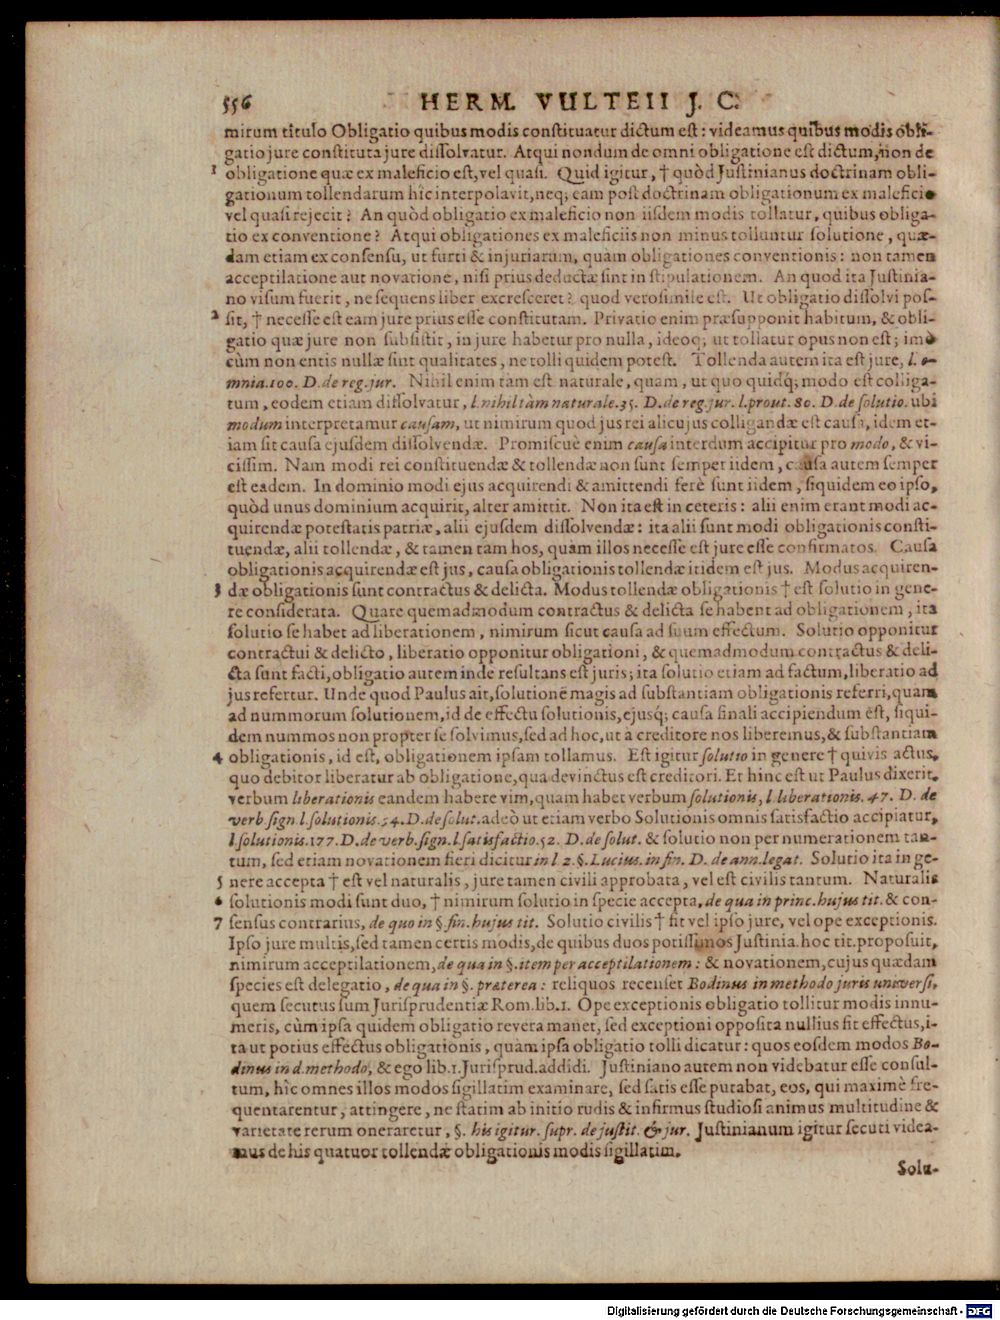 556 HERM. VULTEII J. C.
mirum titulo Obligatio quibus modis constituatur dictum est: videamus quibus modis obli-
gatio jure constituta jure dissolvatur. Atqui nondum de omni obligatione est dictum, non de
1 obligatione quæ ex maleficio est, vel quasi. Quid igitur, † quòd Justinianus doctrinam obli-
gationum tollendarum hîc interpolavit, neq; eam post doctrinam obligationum ex maleficio
vel quasi rejecit? An quòd obligatio ex maleficio non iisdem modis tollatur, quibus obliga-
tio ex conventione? Atqui obligationes ex maleficiis non minus tolluntur solutione, quæ-
dam etiam ex consensu, ut furti & injuriarum, quam obligationes conventionis: non tamen
acceptilatione aut novatione, nisi prius deductæ sint in stipulationem. An quod ita Justinia-
no visum fuerit, ne sequens liber excresceret? quod verosimile est. Ut obligatio dissolvi pos-
2 sit, † necesse est eam jure prius esse constitutam. Privatio enim præsupponit habitum, & obli-
gatio quæ jure non subsistit, in jure habetur pro nulla, ideoq; ut tollatur opus non est; imò
cùm non entis nullæ sint qualitates, ne tolli quidem potest. Tollenda autem ita est jure, l. o-
mnia. 100. D. de reg. jur. Nihil enim tam est naturale, quam, ut quo quidq; modo est colliga-
tum, eodem etiam dissolvatur, l. nihil tàm naturale. 35. D. de reg. jur. l. prout. 80. D. de solutio. ubi
modum interpretamur causam, ut nimirum quod jus rei alicujus colligandæ est causa, idem et-
iam sit causa ejusdem dissolvendæ. Promiscuè enim causa interdum accipitur pro modo, & vi-
cissim. Nam modi rei constituendæ & tollendæ non sunt semper iidem, causa autem semper
est eadem. In dominio modi ejus acquirendi & amittendi ferè sunt iidem, siquidem eo ipso,
quòd unus dominium acquirit, alter amittit. Non ita est in ceteris: alii enim erant modi ac-
quirendæ potestatis patriæ, alii ejusdem dissolvendæ: ita alii sunt modi obligationis consti-
tuendæ, alii tollendæ, & tamen tam hos, quàm illos necesse est jure esse confirmatos. Causa
obligationis acquirendæ est jus, causa obligationis tollendæ itidem est jus. Modus acquiren-
3 dæ obligationis sunt contractus & delicta. Modus tollendæ obligationis † est solutio in gene-
re considerata. Quare quemadmodum contractus & delicta se habent ad obligationem, ita
solutio se habet ad liberationem, nimirum sicut causa ad suum effectum. Solutio opponitur
contractui & delicto, liberatio opponitur obligationi, & quemadmodum contractus & deli-
cta sunt facti, obligatio autem inde resultans est juris; ita solutio etiam ad factum, liberatio ad
jus refertur. Unde quod Paulus ait, solutionē magis ad substantiam obligationis referri, quam
ad nummorum solutionem, id de effectu solutionis, ejusq; causa finali accipiendum est, siqui-
dem nummos non propter se solvimus, sed ad hoc, ut à creditore nos liberemus, & substantiam
4 obligationis, id est, obligationem ipsam tollamus. Est igitur solutio in genere † quivis actus,
quo debitor liberatur ab obligatione, qua devinctus est creditori. Et hinc est ut Paulus dixerit,
verbum liberationis eandem habere vim, quam habet verbum solutionis, l. liberationis. 47. D. de
verb. sign. l. solutionis. 54. D. de solut. adeò ut etiam verbo Solutionis omnis satisfactio accipiatur,
l. solutionis. 177. D. de verb. sign. l. satisfactio. 52. D. de solut. & solutio non per numerationem tan-
tum, sed etiam novationem fieri dicitur in l 2. §. Lucius. in fin. D. de ann. legat. Solutio ita in ge-
5 nere accepta † est vel naturalis, jure tamen civili approbata, vel est civilis tantum. Naturalis
6 solutionis modi sunt duo, † nimirum solutio in specie accepta, de qua in princ. hujus tit. & con-
7 sensus contrarius, de quo in §. fin. hujus tit. Solutio civilis † fit vel ipso jure, vel ope exceptionis.
Ipso jure multis, sed tamen certis modis, de quibus duos potissimos Justinia. hoc tit. proposuit,
nimirum acceptilationem, de qua in §. item per acceptilationem: & novationem, cujus quædam
species est delegatio, de qua in §. præterea: reliquos recenset Bodinus in methodo juris universi,
quem secutus sum Jurisprudentiæ Rom. lib. 1. Ope exceptionis obligatio tollitur modis innu-
meris, cùm ipsa quidem obligatio revera manet, sed exceptioni opposita nullius sit effectus, i-
ta ut potius effectus obligationis, quàm ipsa obligatio tolli dicatur: quos eosdem modos Bo-
dinus in d. methodo, & ego lib. 1. Jurisprud. addidi. Justiniano autem non videbatur esse consul-
tum, hîc omnes illos modos sigillatim examinare, sed satis esse putabat, eos, qui maximè fre-
quentarentur, attingere, ne statim ab initio rudis & infirmus studiosi animus multitudine &
varietate rerum oneraretur, §. his igitur. supr. de justit. & jur. Justinianum igitur secuti videa-
mus de his quatuor tollendæ obligationis modis sigillatim.
Solu-
Digitalisierung gefördert durch die Deutsche Forschungsgemeinschaft - DFG